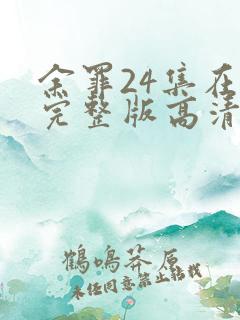 余罪24集在
完整版高清
鹤鸣莽原
未经同意禁止转载